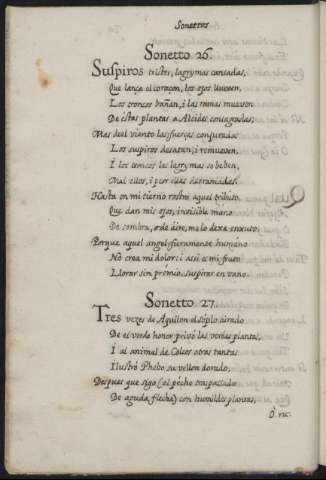 Sonettos
Sonetto 26.
Suspiros tristes, lagrymas cansadas,
Que lança el coraçon, los ojos llueven,
Los troncos bañan, i las ramas mueven
De estas plantas a Alcides consagradas;
Mas del viento las fuerças conjuradas
Los suspiros desatan, i remueven,
I los troncos las lagrymas se beben,
Mal ellos, i peor ellas derramadas.
Hasta en mi tierno rostro aquel tributo,
Que dan mis ojos, invisible mano
De sombra, o de aire, me lo dexa enxuto;
Porque aquel angel fieramente humano
No crea mi dolor: i assi es mi fruto
Llorar sin premio, suspirar en vano.
Sonetto 27.
Tres vezes de Aquilon el soplo airado
De el verde honor privò las verdes plantas,
I al animal de Colcos otras tantas
Ilustrò Phebo su vellon dorado,
Despues que sigo (el pecho traspassado
De aguda flecha) con humildes plantas,
Ò nc.